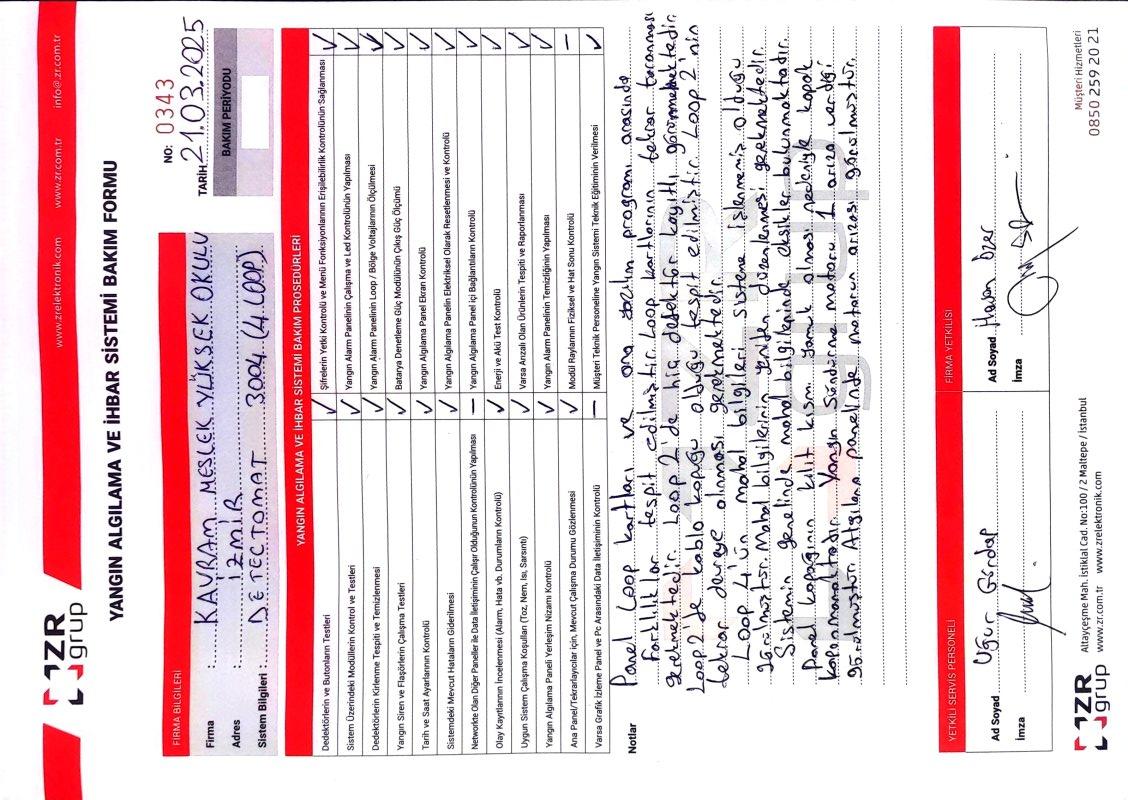 ZR grup
www.zrelektronik.com www.zr.com.tr info@zr.com.tr
YANGIN ALGILAMA VE İHBAR SİSTEMİ BAKIM FORMU
NO: 0343
TARİH 21.03.2025
BAKIM PERİYODU
FİRMA BİLGİLERİ
Firma : KAVRAM MESLEK YÜKSEK OKULU
Adres : İZMİR
Sistem Bilgileri : DETECTOMAT 3004 (4 LOOP)
YANGIN ALGILAMA VE İHBAR SİSTEMİ BAKIM PROSEDÜRLERİ
Dedektörlerin ve Butonların Testleri ✓ Şifrelerin Yetki Kontrolü ve Menü Fonksiyonlarının Erişilebilirlik Kontrolünün Sağlanması ✓
Sistem Üzerindeki Modüllerin Kontrol ve Testleri ✓ Yangın Alarm Panelinin Çalışma ve Led Kontrolünün Yapılması ✓
Dedektörlerin Kirlenme Tespiti ve Temizlenmesi ✓ Yangın Alarm Panelinin Loop / Bölge Voltajlarının Ölçülmesi ✓
Yangın Siren ve Flaşörlerin Çalışma Testleri ✓ Batarya Denetleme Güç Modülünün Çıkış Güç Ölçümü ✓
Tarih ve Saat Ayarlarının Kontrolü ✓ Yangın Algılama Panel Ekran Kontrolü ✓
Sistemdeki Mevcut Hataların Giderilmesi ✓ Yangın Algılama Panelinin Elektriksel Olarak Resetlenmesi ve Kontrolü ✓
Networkte Olan Diğer Paneller ile Data İletişiminin Çalışır Olduğunun Kontrolünün Yapılması – Yangın Algılama Panel içi Bağlantıların Kontrolü ✓
Olay Kayıtlarının İncelenmesi (Alarm, Hata vb. Durumların Kontrolü) ✓ Enerji ve Akü Test Kontrolü ✓
Uygun Sistem Çalışma Koşulları (Toz, Nem, Isı, Sarsıntı) ✓ Varsa Arızalı Olan Ürünlerin Tespiti ve Raporlanması ✓
Yangın Algılama Paneli Yerleşim Nizamı Kontrolü ✓ Yangın Alarm Panelinin Temizliğinin Yapılması ✓
Ana Panel/Tekrarlayıcılar için, Mevcut Çalışma Durumu Gözlenmesi ✓ Modül Raylarının Fiziksel ve Hat Sonu Kontrolü –
Varsa Grafik İzleme Panel ve Pc Arasındaki Data İletişiminin Kontrolü – Müşteri Teknik Personeline Yangın Sistemi Teknik Eğitiminin Verilmesi ✓
Notlar
Panel Loop kartları ve ana yazılım programı arasında
Farklılıklar tespit edilmiştir. Loop kartlarının tekrar taranması
gerekmektedir. Loop 2'de hiç dedektör kayıtlı görünmemektedir.
Loop 2'de kablo kopuğu olduğu tespit edilmiştir. Loop 2'nin
tekrar devreye alınması gerekmektedir.
Loop 4'ün mahal bilgileri sisteme işlenmemiş olduğu
görülmüştür. Mahal bilgilerinin yeniden düzenlenmesi gerekmektedir.
Sistemin genelinde mahal bilgilerinde eksikler bulunmaktadır.
Panel kapağının kilit kısmı yamuk olması nedeniyle kapak
kapanmamaktadır. Yangın Söndürme motoru 1 arıza verdiği
görülmüştür. Algılama panelinde motorun arızası görülmüştür.
YETKİLİ SERVİS PERSONELİ
Ad Soyad : Uğur Gündap
İmza :
FİRMA YETKİLİSİ
Ad Soyad : Hasan Özer
İmza :
ZR grup
Altayçeşme Mah. İstiklal Cad. No:100 / 2 Maltepe / İstanbul
www.zr.com.tr www.zrelektronik.com
Müşteri Hizmetleri
0850 259 20 21